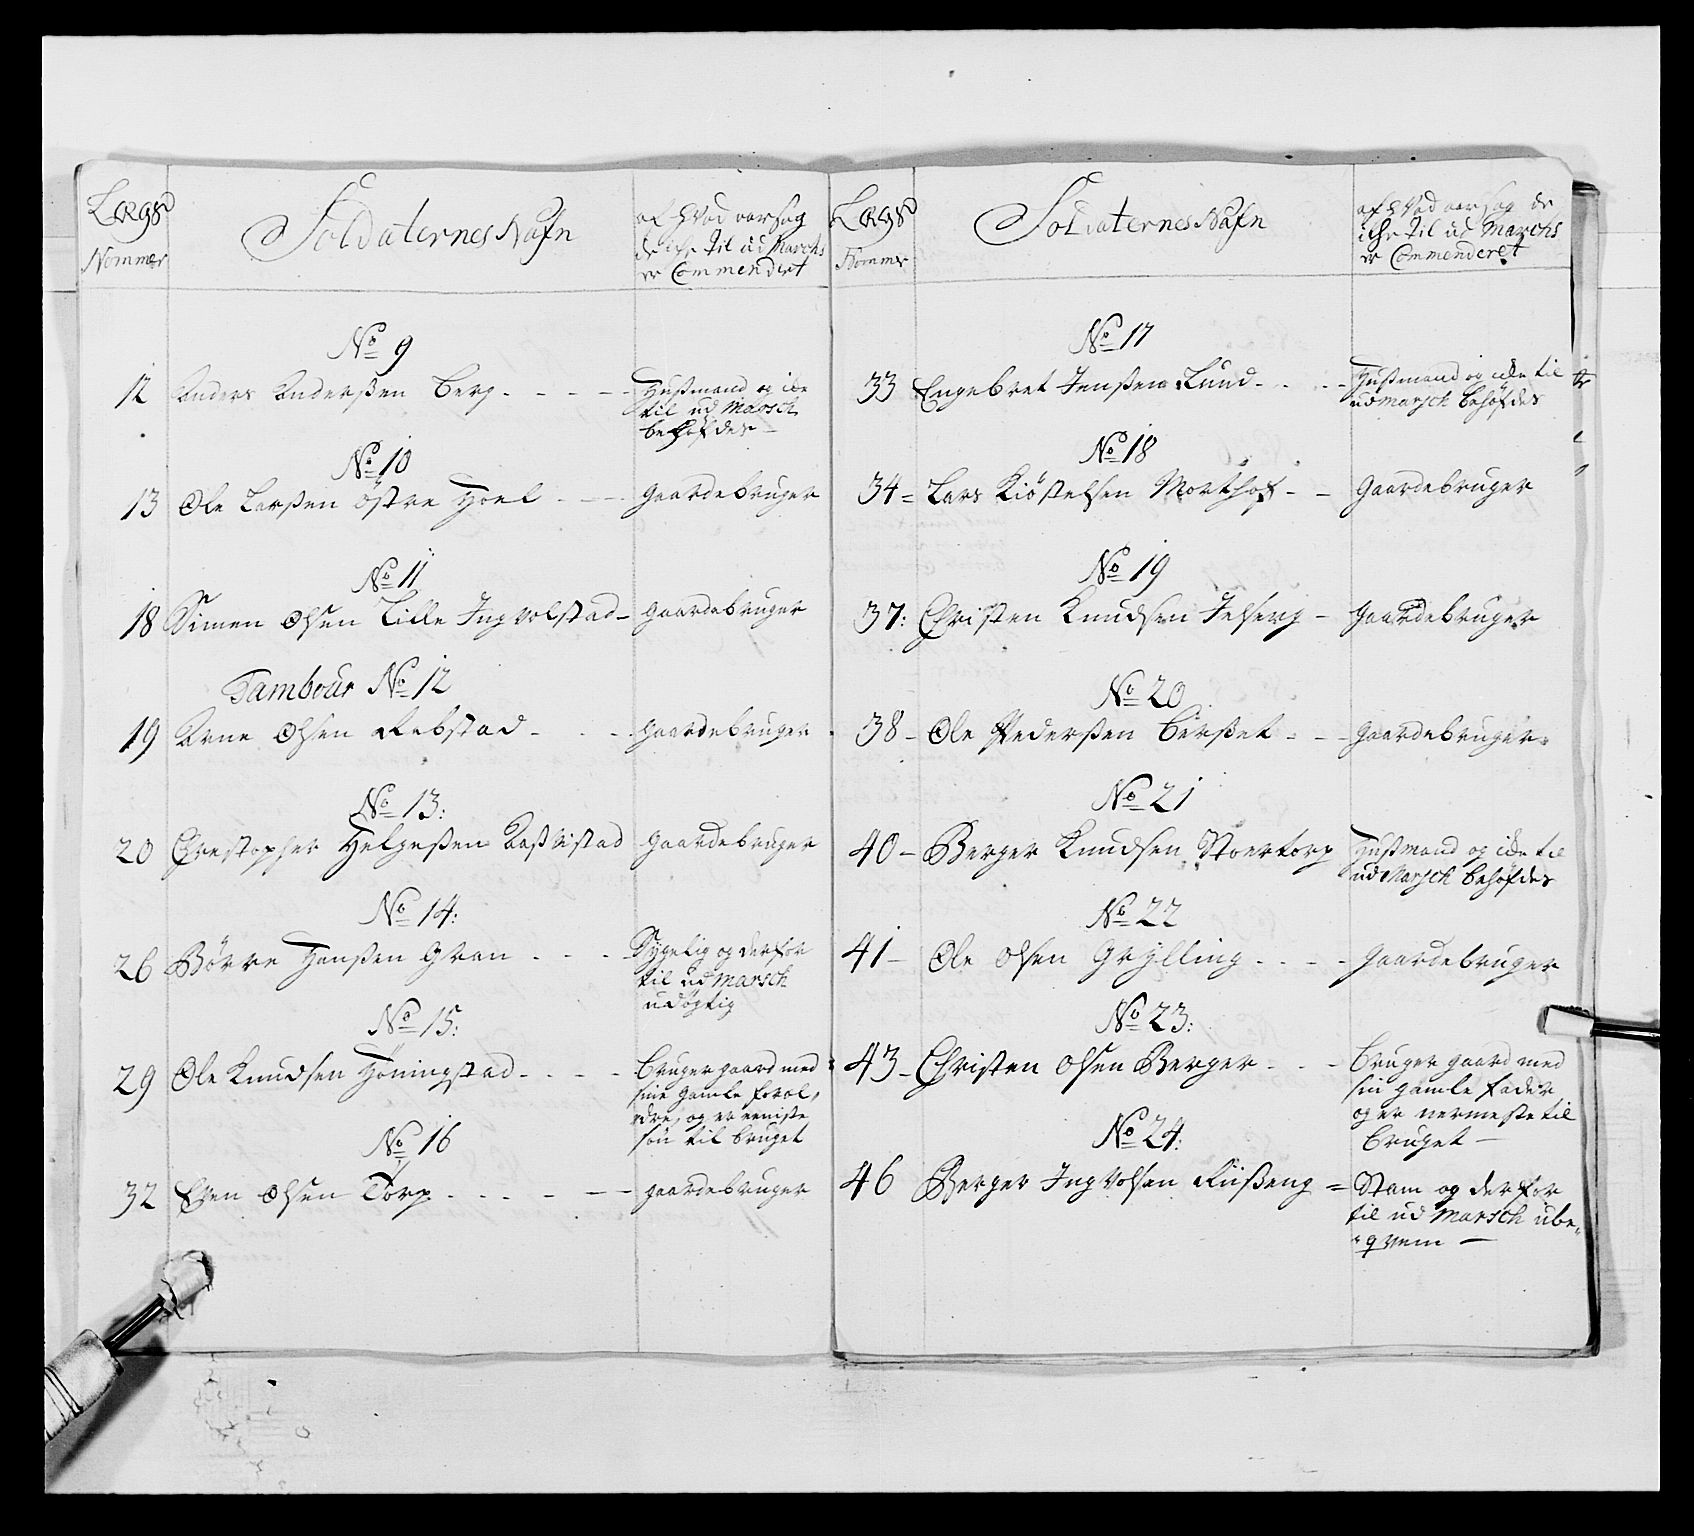 Lægs
Nommer
Soldaternes Nafn
af hvad aarsag
de icke til ud Marchs
er Commendert
No 9
12 Anders Anderßen Berg - - - - -
Hußmand og icke
til ud Marsch
behøfdes -
No 10
13 Ole Larßen østre Hoel - - - -
gaardebruger
No 11
18 Simen Olsen Lille Ingvolstad -
gaardebruger
Tambour No 12
19 Arne Olsen Rebstad - - - -
gaardebruger
No 13:
20 Christopher Helgeßen
gaardebruger
No 14:
26 Børre Hanßen Gran - - - -
Sygelig og derfor
til ud Marsch
udøgtig
No 15:
29 Ole Knudsen Høningstad - - - -
bruger gaard med
sine gamle foræl,
dre, og er eeniste
søn til bruget
No 16
32 Even Olsen Torp - - - - - -
gaardebruger
Lægs
Nommer
Soldaternes Nafn
af hvad aarsag de
icke til ud Marchs
er Commenderet
No 17
33 Engebret Jenßen Lund - - - -
Hußmand og icke til
ud marsch behøfdes
No 18
34 = Lars Kiøstelsen Morthof - -
gaardebruger
No 19
37: Christen Knudsen Jelberg -
gaardebruger
No 20
38 - Ole Pederßen Berßet - - -
gaardebruger
No 21
40 - Berger Knudsen Stoertorp
Hußmand og icke til
ud Marsch behøfdes
No 22
41 - Ole Olsen Grylling - - - -
gaardebruger
No 23:
43 - Christen Olsen Berger - - -
bruger gaard med
sin gamle fader
og er nermeste til
bruget -
No 24:
46 Berger Ingvolsen Riißeng =
Stam og derfor
til ud Marsch ube„
„qvem -